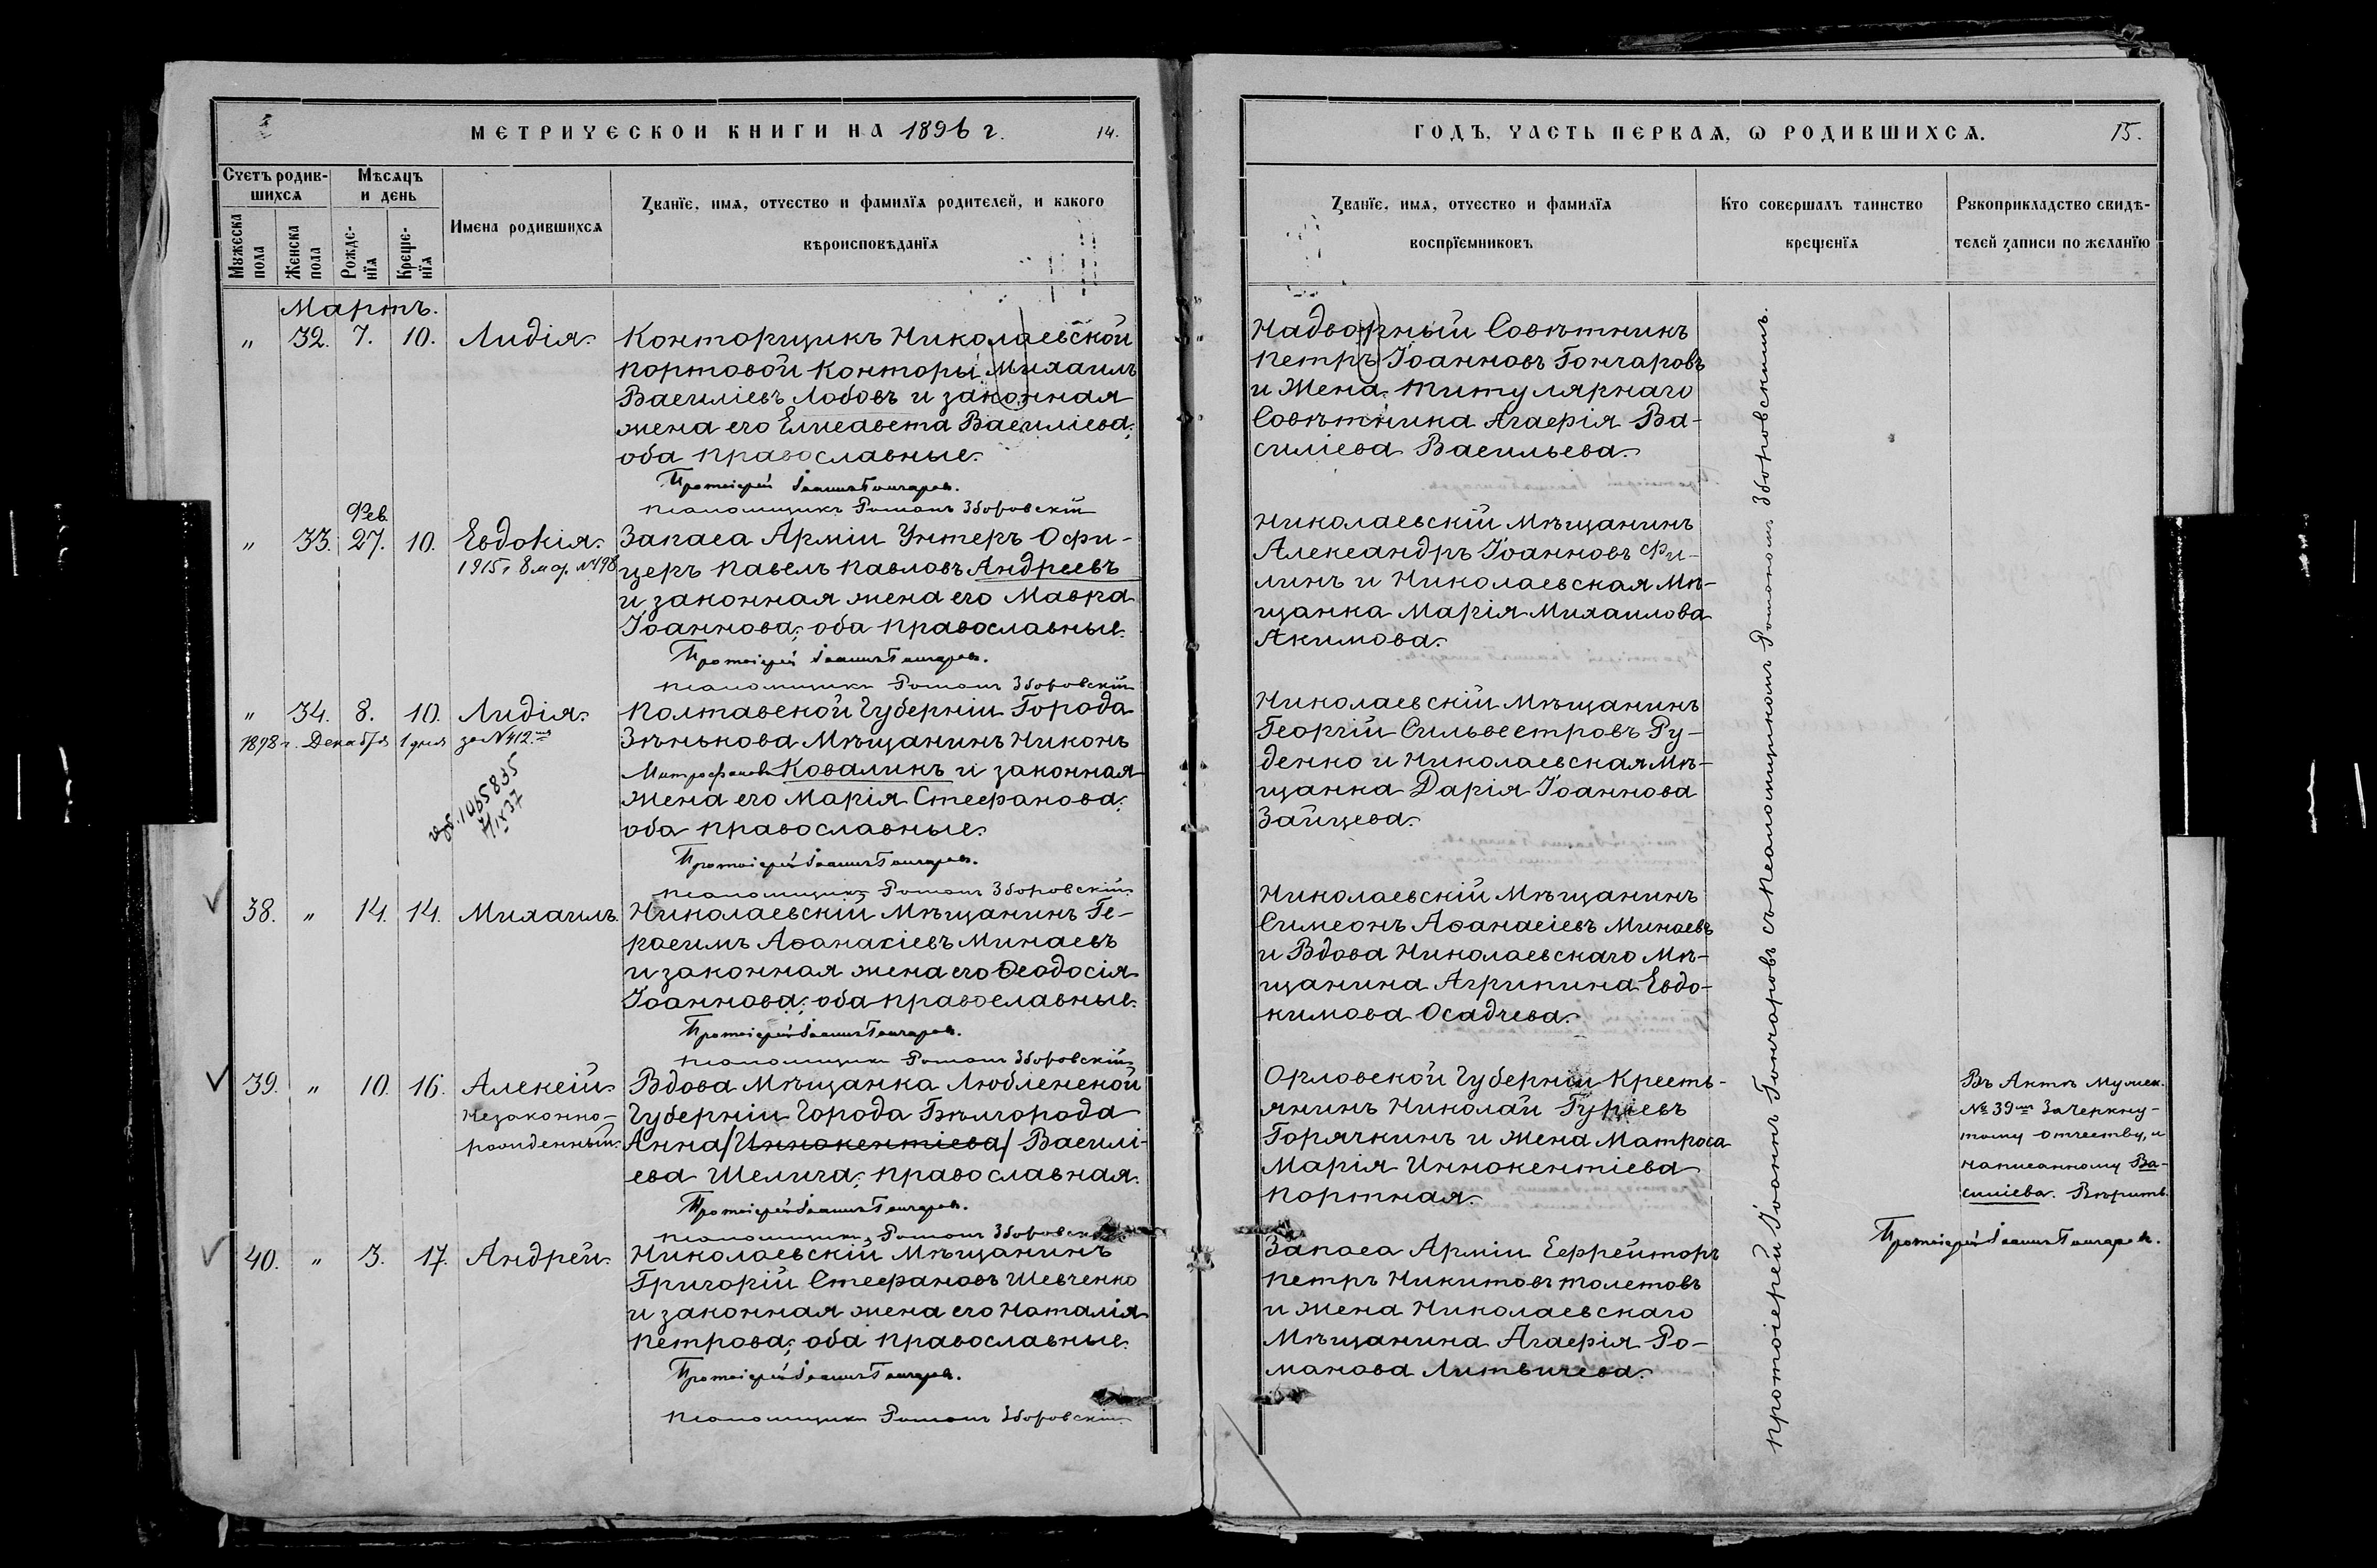 МЕТРИЧЕСКОЙ КНИГИ НА 1896 г. 14.
Счетъ родив-
шихся
Мѣсяцъ
и день
Мужеска
пола
Женска
пола
Рожде-
нїя
Креще-
нїя
Имена родившихся
Званїе, имя, отчество и фамилїя родителей, и какого
вѣроисповѣданїя
Мартъ.
„ 32. 7. 10. Лидія. Конторщикъ Николаевской
портовой Конторы Михаилъ
Василіевъ Лобовъ и законная
жена его Елисавета Василіева;
оба православные.
Протоіерей Іоаннъ Гончаровъ.
псаломщикъ Романъ Зборовскій
Фев.
„ 33. 27. 10. Евдокія. Запаса Арміи Унтеръ Офи-
1915 г 8 мар. №498
церъ Павелъ Павловъ Андреевъ
и законная жена его Мавра
Іоаннова; оба православные.
Протоіерей Іоаннъ Гончаровъ.
псаломщикъ Романъ Зборовскій
„ 34. 8. 10. Лидія. Полтавской Губерніи Города
1898 г. Декабря 1 дня за №412.
Зѣнькова Мѣщанинъ Никонъ
Митрофановъ Ковалинъ и законная
жена его Марія Стефанова;
оба православные.
Протоіерей Іоаннъ Гончаровъ.
псаломщикъ Романъ Зборовскій
38. „ 14. 14. Михаилъ. Николаевскій Мѣщанинъ Ге-
расимъ Аѳанасіевъ Минаевъ
и законная жена его Ѳеодосія
Іоаннова; оба православные.
Протоіерей Іоаннъ Гончаровъ.
псаломщикъ Романъ Зборовскій
39. „ 10. 16. Алексій. Вдова Мѣщанка Любленской
незаконно-
Губерніи Города Бѣлгорода
рожденный.
Анна /Иннокентіева/ Василі-
ева Шелига; православная.
Протоіерей Іоаннъ Гончаровъ.
псаломщикъ Романъ Зборовскій
40. „ 3. 17. Андрей. Николаевскій Мѣщанинъ
Григорій Стефановъ Шевченко
и законная жена его Наталія
Петрова; оба православные.
Протоіерей Іоаннъ Гончаровъ.
псаломщикъ Романъ Зборовскій
ГОДЪ, ЧАСТЬ ПЕРВАЯ, Ѡ РОДИВШИХСЯ. 15.
Званїе, имя, отчество и фамилїя
воспрїемниковъ
Кто совершалъ таинство
крещенїя
Рукоприкладство свидѣ-
телей записи по желанїю
Надворный Совѣтникъ
Петръ Іоанновъ Гончаровъ
и Жена Титулярнаго
Совѣтника Агафія Ва-
силіева Васильева.
Николаевскій Мѣщанинъ
Александръ Іоанновъ Фи-
линъ и Николаевская Мѣ-
щанка Марія Михаилова
Акимова.
Николаевскій Мѣщанинъ
Георгій Сильвестровъ Ру-
денко и Николаевская Мѣ-
щанка Дарія Іоаннова
Зайцева.
Николаевскій Мѣщанинъ
Симеонъ Аѳанасіевъ Минаевъ
и Вдова Николаевскаго Мѣ-
щанина Агрипина Евдо-
кимова Осадчева.
Орловской Губерніи Кресть-
янинъ Николай Гуріевъ
Горячкинъ и жена Матроса
Марія Иннокентіева
Портная.
Запаса Арміи Ефрейторъ
Петръ Никитовъ Толстовъ
и жена Николаевскаго
Мѣщанина Агафія Ро-
манова Литвичева.
Протоіерей Іоаннъ Гончаровъ съ псаломщикомъ Романомъ Зборовскимъ.
Въ Актѣ мужск.
№ 39 зачеркну-
тому отчеству, и
написанному Ва-
силіева. Вѣрить.
Протоіерей Іоаннъ Гончаровъ.